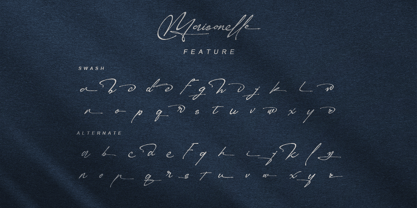 Maisonelle
FEATURE
SWASH
a b c d e f g h i j k l m
n o p q r s t u v w x y z
ALTERNATE
a b c d e f g h i j k l y
n o p q r s t u v w x y z